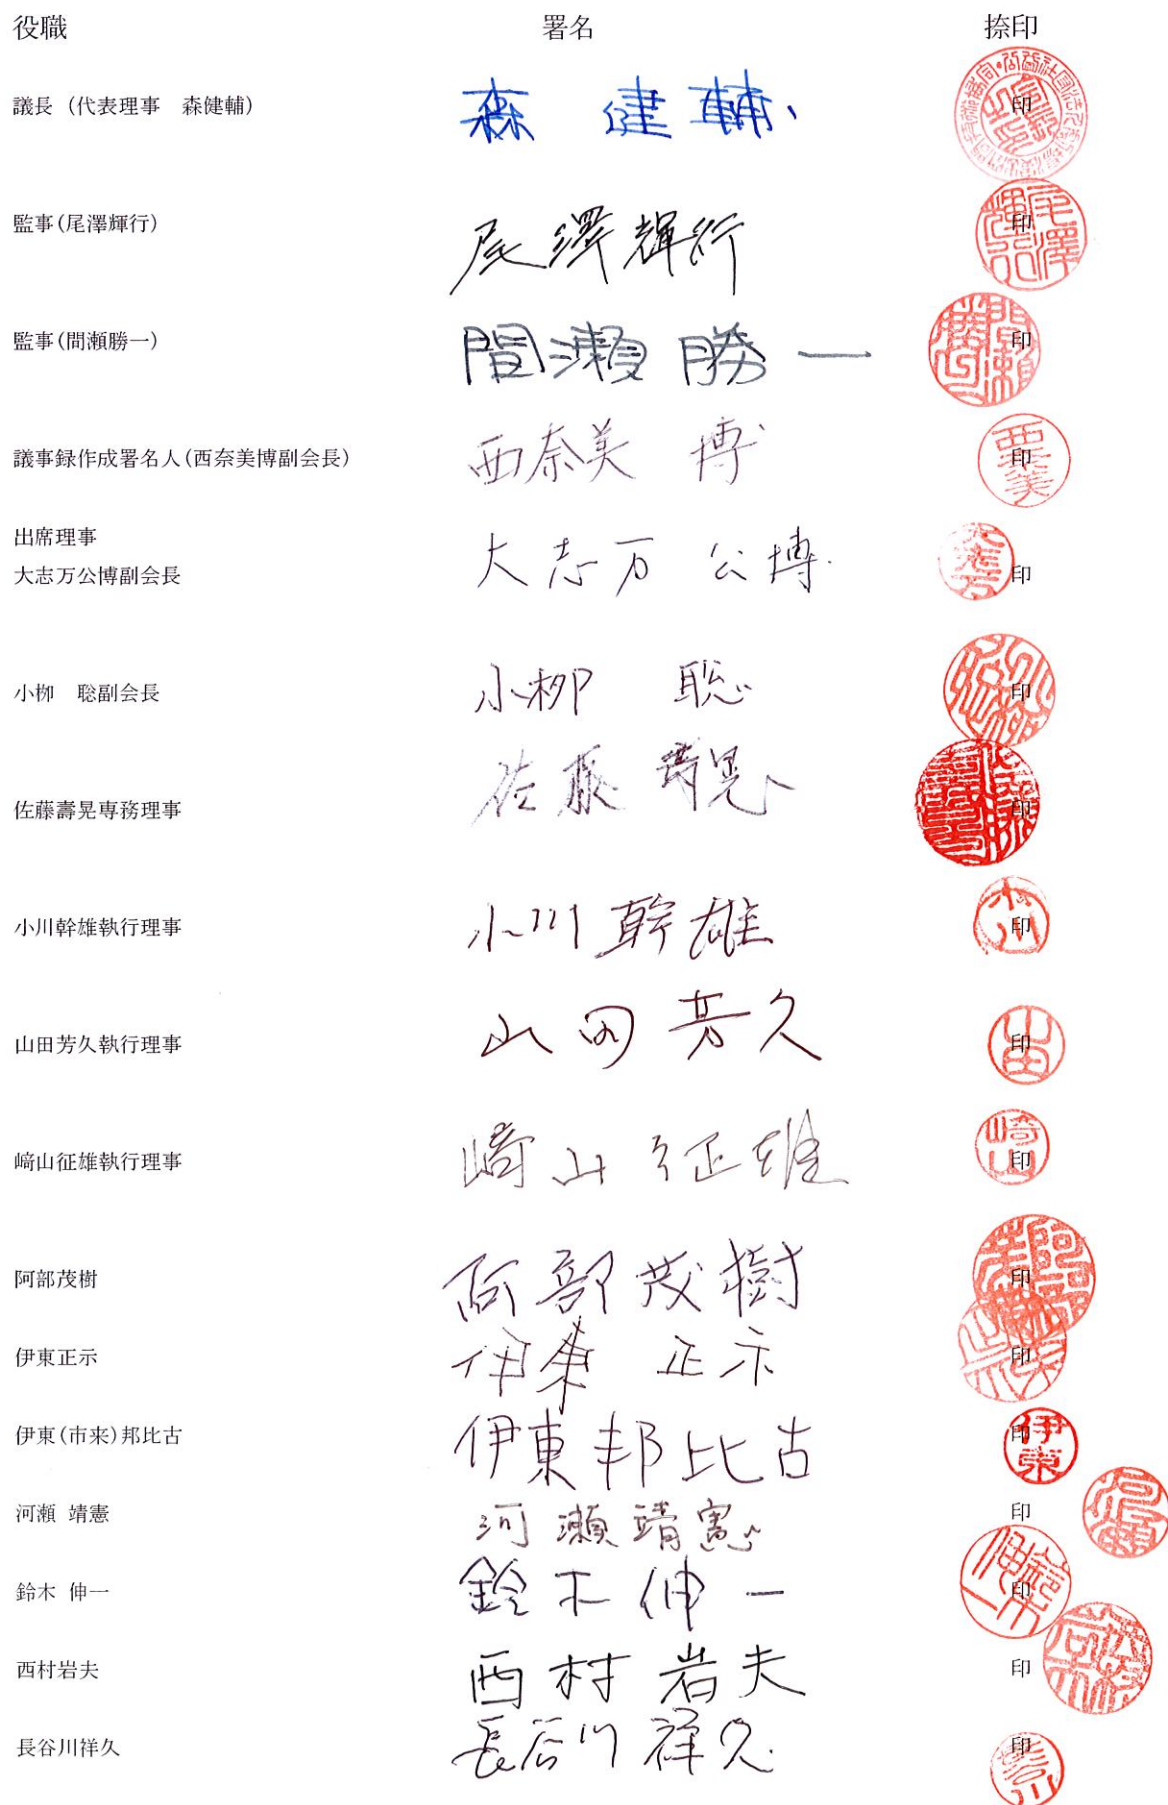 役職 署名 捺印
議長（代表理事　森健輔） 森 健輔 印
監事(尾澤輝行) 尾澤輝行 印
監事(間瀬勝一) 間瀬勝一 印
議事録作成署名人(西奈美博副会長) 西奈美 博 印
出席理事
大志万公博副会長 大志万 公博 印
小栁　聡副会長 小栁 聡 印
佐藤壽晃専務理事 佐藤 壽晃 印
小川幹雄執行理事 小川幹雄 印
山田芳久執行理事 山田芳久 印
﨑山征雄執行理事 﨑山征雄 印
阿部茂樹 阿部茂樹 印
伊東正示 伊東 正示 印
伊東(市来)邦比古 伊東邦比古 印
河瀬 靖憲 河瀬靖憲 印
鈴木 伸一 鈴木伸一 印
西村岩夫 西村岩夫 印
長谷川祥久 長谷川祥久 印